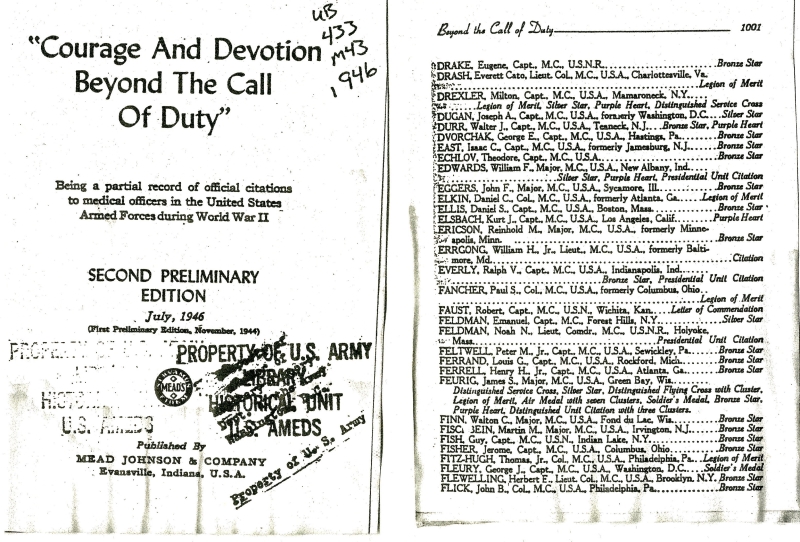 UB
433
M43
1946
"Courage And Devotion
Beyond The Call
Of Duty"
Being a partial record of official citations
to medical officers in the United States
Armed Forces during World War II
SECOND PRELIMINARY
EDITION
July, 1946
(First Preliminary Edition, November, 1944)
PROPERTY OF U.S. ARMY
LIBRARY
HISTORICAL UNIT
U.S. AMEDS
PROPERTY OF
U.S. AMEDS
MEADS
Property of U. S. Army
Published By
MEAD JOHNSON & COMPANY
Evansville, Indiana, U.S.A.
Beyond the Call of Duty 1001
DRAKE, Eugene, Capt., M.C., U.S.N.R. Bronze Star
DRASH, Everett Cato, Lieut. Col., M.C., U.S.A., Charlottesville, Va.
Legion of Merit
DREXLER, Milton, Capt., M.C., U.S.A., Mamaroneck, N.Y.
Legion of Merit, Silver Star, Purple Heart, Distinguished Service Cross
DUGAN, Joseph A., Capt., M.C., U.S.A., formerly Washington, D.C. Silver Star
DURR, Walter J., Capt., M.C., U.S.A., Teaneck, N.J. Bronze Star, Purple Heart
DVORCHAK, George E., Capt., M.C., U.S.A., Hastings, Pa. Bronze Star
EAST, Isaac C., Capt., M.C., U.S.A., formerly Jamesburg, N.J. Bronze Star
ECHLOV, Theodore, Capt., M.C., U.S.A. Bronze Star
EDWARDS, William F., Major, M.C., U.S.A., New Albany, Ind.
Silver Star, Purple Heart, Presidential Unit Citation
EGGERS, John F., Major, M.C., U.S.A., Sycamore, Ill. Bronze Star
ELKIN, Daniel C., Col., M.C., U.S.A., formerly Atlanta, Ga. Legion of Merit
ELLIS, Daniel S., Capt., M.C., U.S.A., Boston, Mass. Bronze Star
ELSBACH, Kurt J., Capt., M.C., U.S.A., Los Angeles, Calif. Purple Heart
ERICSON, Reinhold M., Major, M.C., U.S.A., formerly Minne-
apolis, Minn. Bronze Star
ERRGONG, William H., Jr., Lieut., M.C., U.S.A., formerly Balti-
more, Md. Citation
EVERLY, Ralph V., Capt., M.C., U.S.A., Indianapolis, Ind.
Bronze Star, Presidential Unit Citation
FANCHER, Paul S., Col., M.C., U.S.A., formerly Columbus, Ohio
Legion of Merit
FAUST, Robert, Capt., M.C., U.S.N., Wichita, Kan. Letter of Commendation
FELDMAN, Emanuel, Capt., M.C., Forest Hills, N.Y. Silver Star
FELDMAN, Noah N., Lieut. Comdr., M.C., U.S.N.R., Holyoke,
Mass. Presidential Unit Citation
FELTWELL, Peter M., Jr., Capt., M.C., U.S.A., Sewickley, Pa. Bronze Star
FERRAND, Louis G., Capt., M.C., U.S.A., Rockford, Mich. Bronze Star
FERRELL, Henry H., Jr., Capt., M.C., U.S.A., Atlanta, Ga. Bronze Star
FEURIG, James S., Major, M.C., U.S.A., Green Bay, Wis.
Distinguished Service Cross, Silver Star, Distinguished Flying Cross with Cluster,
Legion of Merit, Air Medal with seven Clusters, Soldier's Medal, Bronze Star,
Purple Heart, Distinguished Unit Citation with three Clusters.
FINN, Walton C., Major, M.C., U.S.A., Fond du Lac, Wis. Bronze Star
JEIN, Martin M., Major, M.C., U.S.A., Irvington, N.J. Bronze Star
FISH, Guy, Capt., M.C., U.S.N., Indian Lake, N.Y. Bronze Star
FISHER, Jerome, Capt., M.C., U.S.A., Columbus, Ohio Bronze Star
FITZ-HUGH, Thomas, Jr., Col., M.C., U.S.A., Philadelphia, Pa. Legion of Merit
FLEURY, George J., Capt., M.C., U.S.A., Washington, D.C. Soldier's Medal
FLEWELLING, Herbert E., Lieut. Col., M.C., U.S.A., Brooklyn, N.Y. Bronze Star
FLICK, John B., Col., M.C., U.S.A., Philadelphia, Pa. Bronze Star